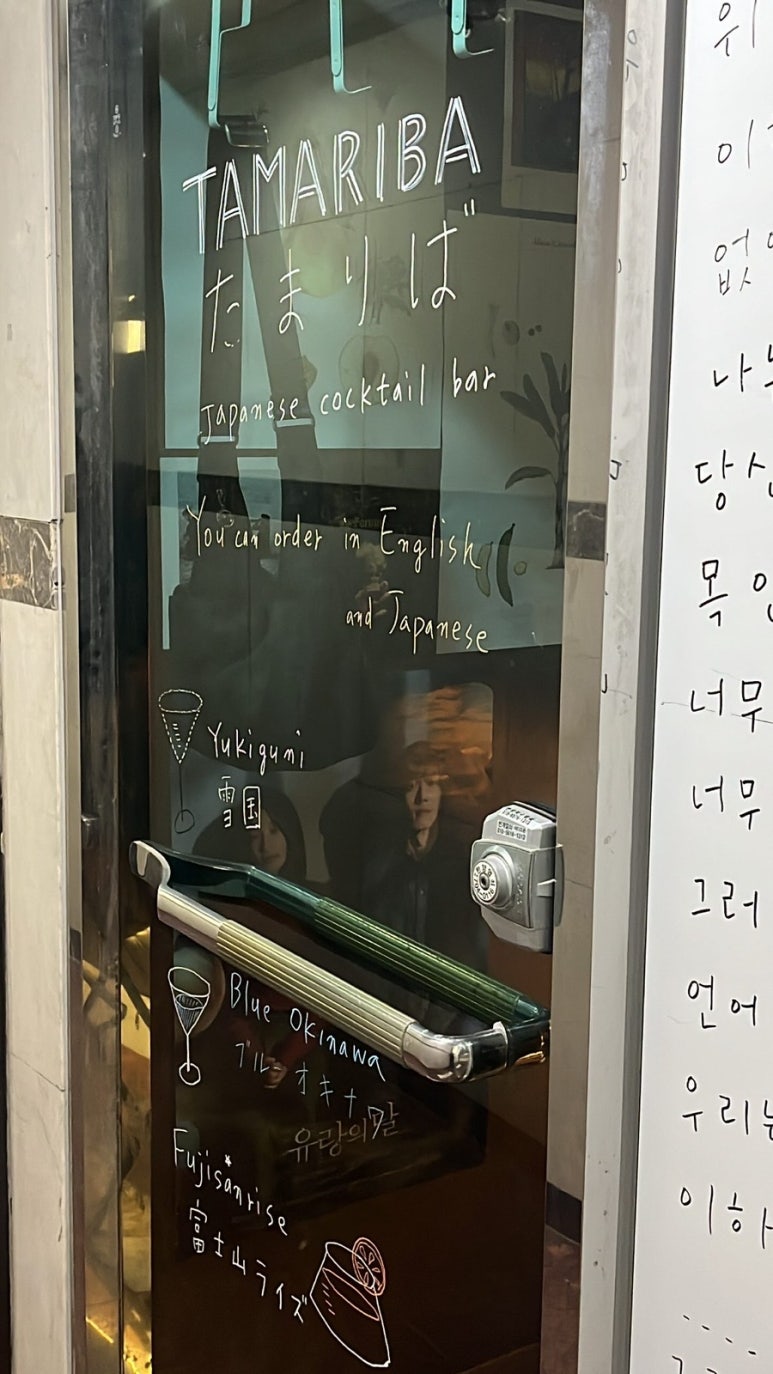 TAMARIBA
たまりば
Japanese cocktail bar
You can order in English
and Japanese
Yukiguni
雪国
Blue Okinawa
ブルーオキナワ
유랑의 말
Fujisanrise
富士山ライズ
위
이
없
나
당신
목
너무
너무
그러
언어
우리는
이하